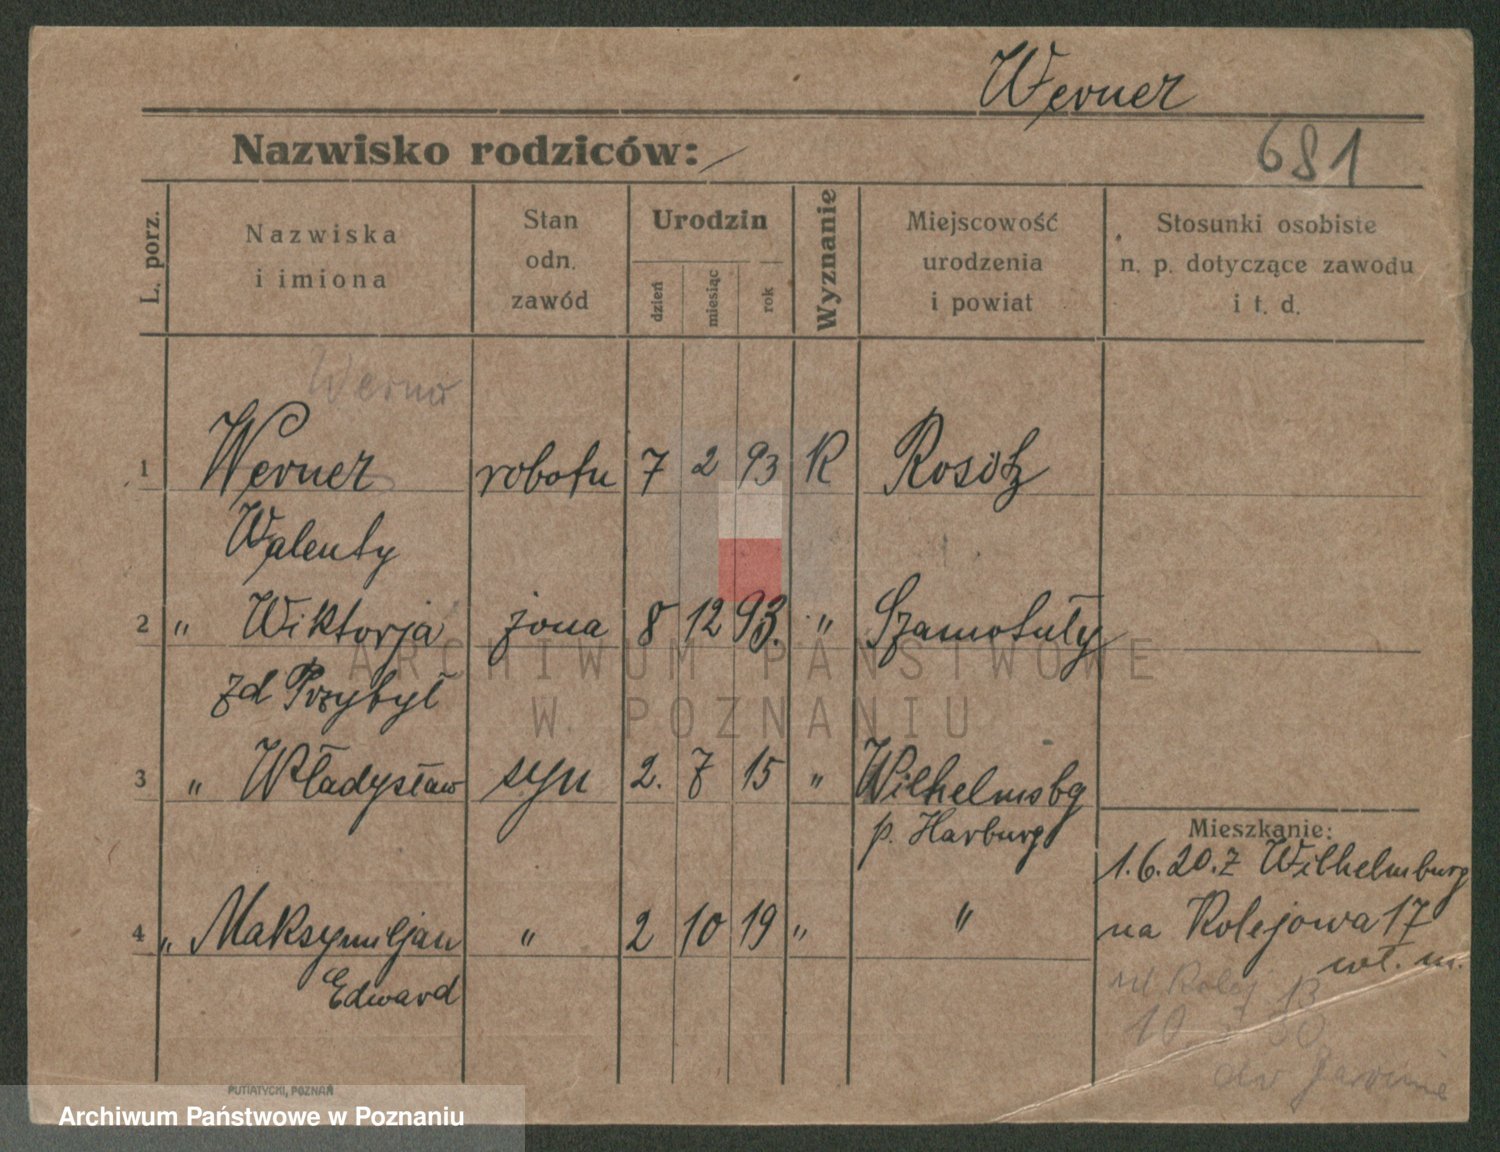 Werner
Nazwisko rodziców:
681
L. porz.
Nazwiska
i imiona
Stan
odn.
zawód
Urodzin
dzień
miesiąc
rok
Wyznanie
Miejscowość
urodzenia
i powiat
Stosunki osobiste
n. p. dotyczące zawodu
i t. d.
1 Werner robotn 7 2 93 R
Walenty
2 " Wiktorja żona 8 12 93. " Szamotuły
zd Przybył
3 " Władysław syn 2. 7 15 " Wilhelmsbg
p. Harburg
Mieszkanie:
1.6.20. z Wilhelmburg
4 " Maksymiljan " 2 10 19 " " na Kolejowa 17
Edward
wł. m.
ARCHIWUM PAŃSTWOWE
W POZNANIU
PUTIATYCKI, POZNAŃ
Archiwum Państwowe w Poznaniu